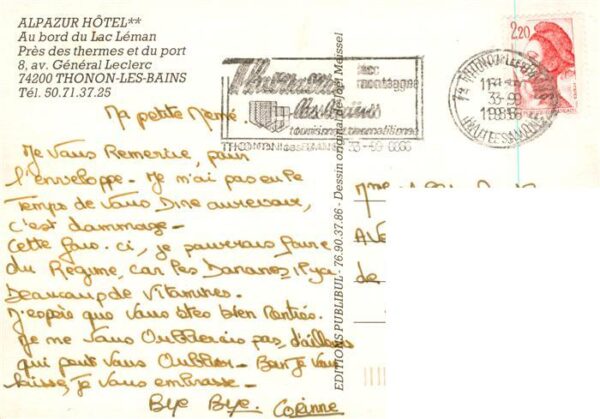 ALPAZUR HÔTEL**
Au bord du Lac Léman
Près des thermes et du port
8, av. Général Leclerc
74200 THONON-LES-BAINS
Tél. 50.71.37.25
2,20
Thonon
lac
montagne
les bains
Ma petite Mémé.
Je Vous Remercie, pour
l'enveloppe - Je n'ai pas eu le
Temps de Vous Dire aurevoir,
c'est dommage -
Cette fois. ci, je pourrais faire
du Régime, car les Bananes, il y a
Beaucoup de Vitamines.
J'espère que Vous êtes bien Rentrée.
Je ne Vous Oublierais pas, d'ailleurs
qui peut Vous Oublier - Bon Je Vous
laisse, Je Vous embrasse -
Bye Bye. Corinne
EDITIONS PUBLIBUL - 76.90.37.86 - Dessin original de Joël Meissel
Mme
AVE
de